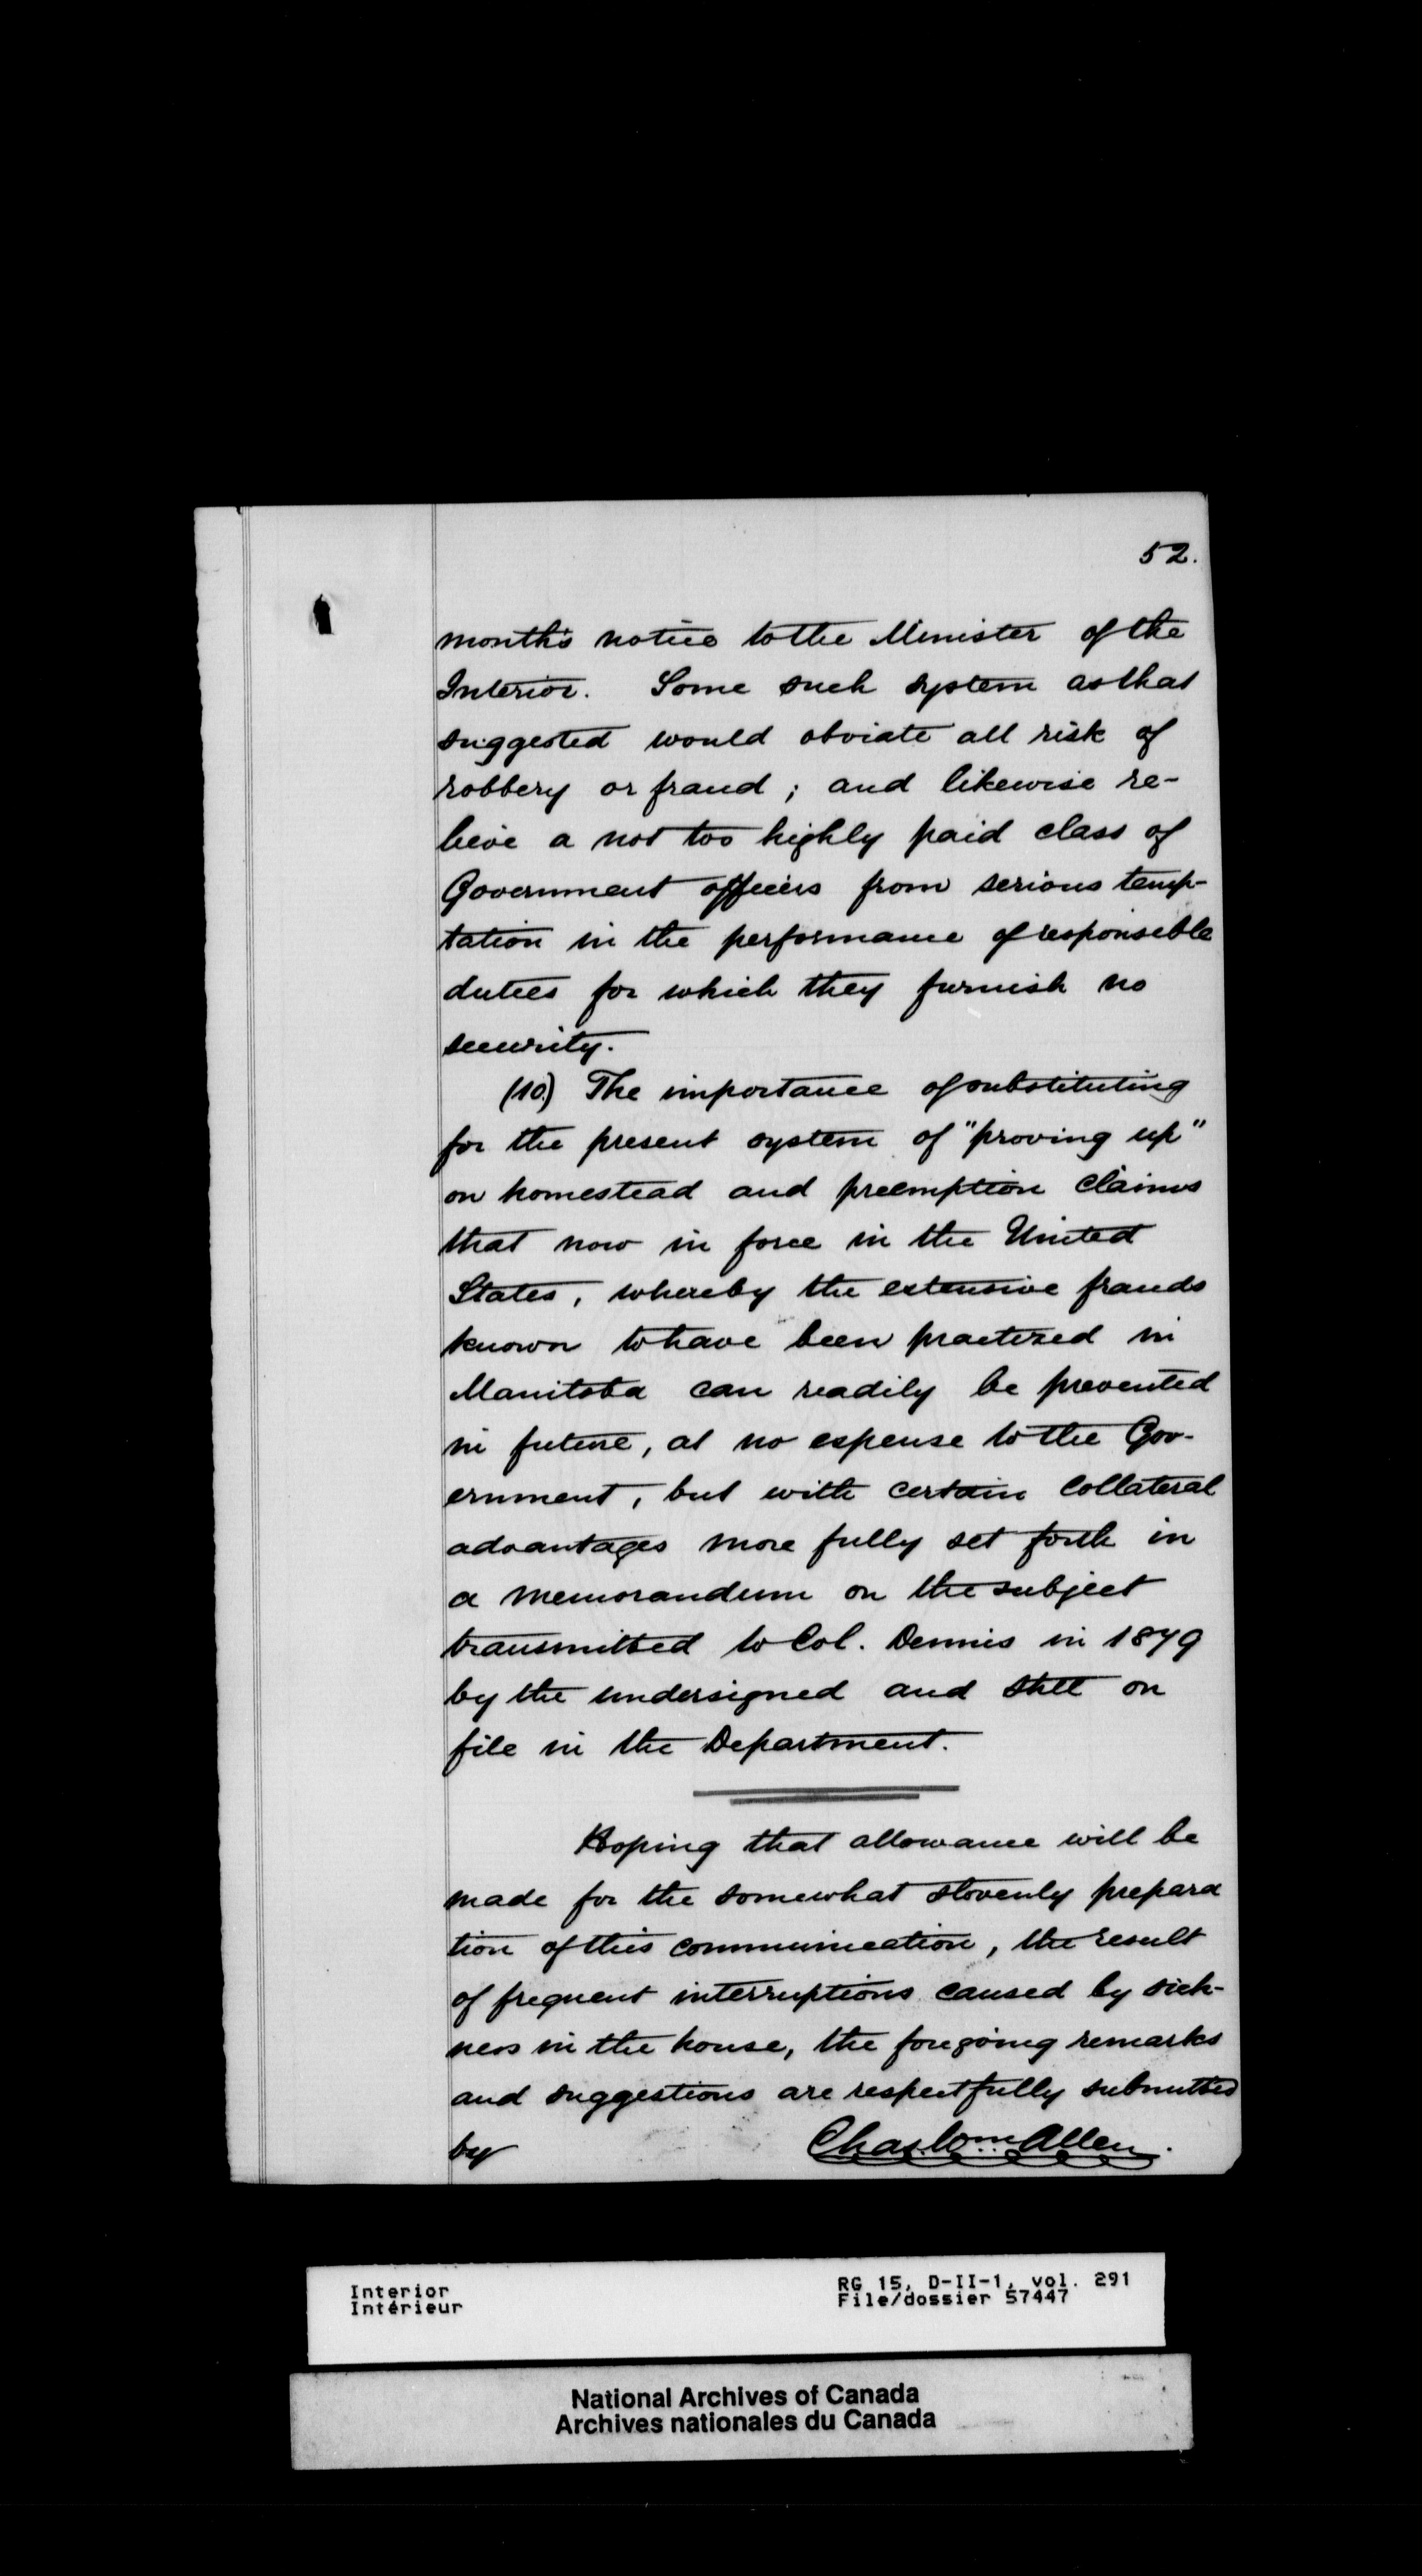 52.
month's notice to the Minister of the
Interior. Some such system as that
suggested would obviate all risk of
robbery or fraud; and likewise re-
lieve a not too highly paid class of
Government officers from serious temp-
tation in the performance of responsible
duties for which they furnish no
security.
(10.) The importance of substituting
for the present system of "proving up"
on homestead and preemption claims
that now in force in the United
States, whereby the extensive frauds
known to have been practized in
Manitoba can readily be prevented
in future, at no expense to the Gov-
ernment, but with certain collateral
advantages more fully set forth in
a memorandum on the subject
transmitted to Col. Dennis in 1879
by the undersigned and still on
file in the Department.
Hoping that allowance will be
made for the somewhat slovenly prepara
tion of this communication, the result
of frequent interruptions caused by sick-
ness in the house, the foregoing remarks
and suggestions are respectfully submitted
by Chas. Wm. Allen.
Interior
Intérieur
RG 15, D-II-1, vol. 291
File/dossier 57447
National Archives of Canada
Archives nationales du Canada